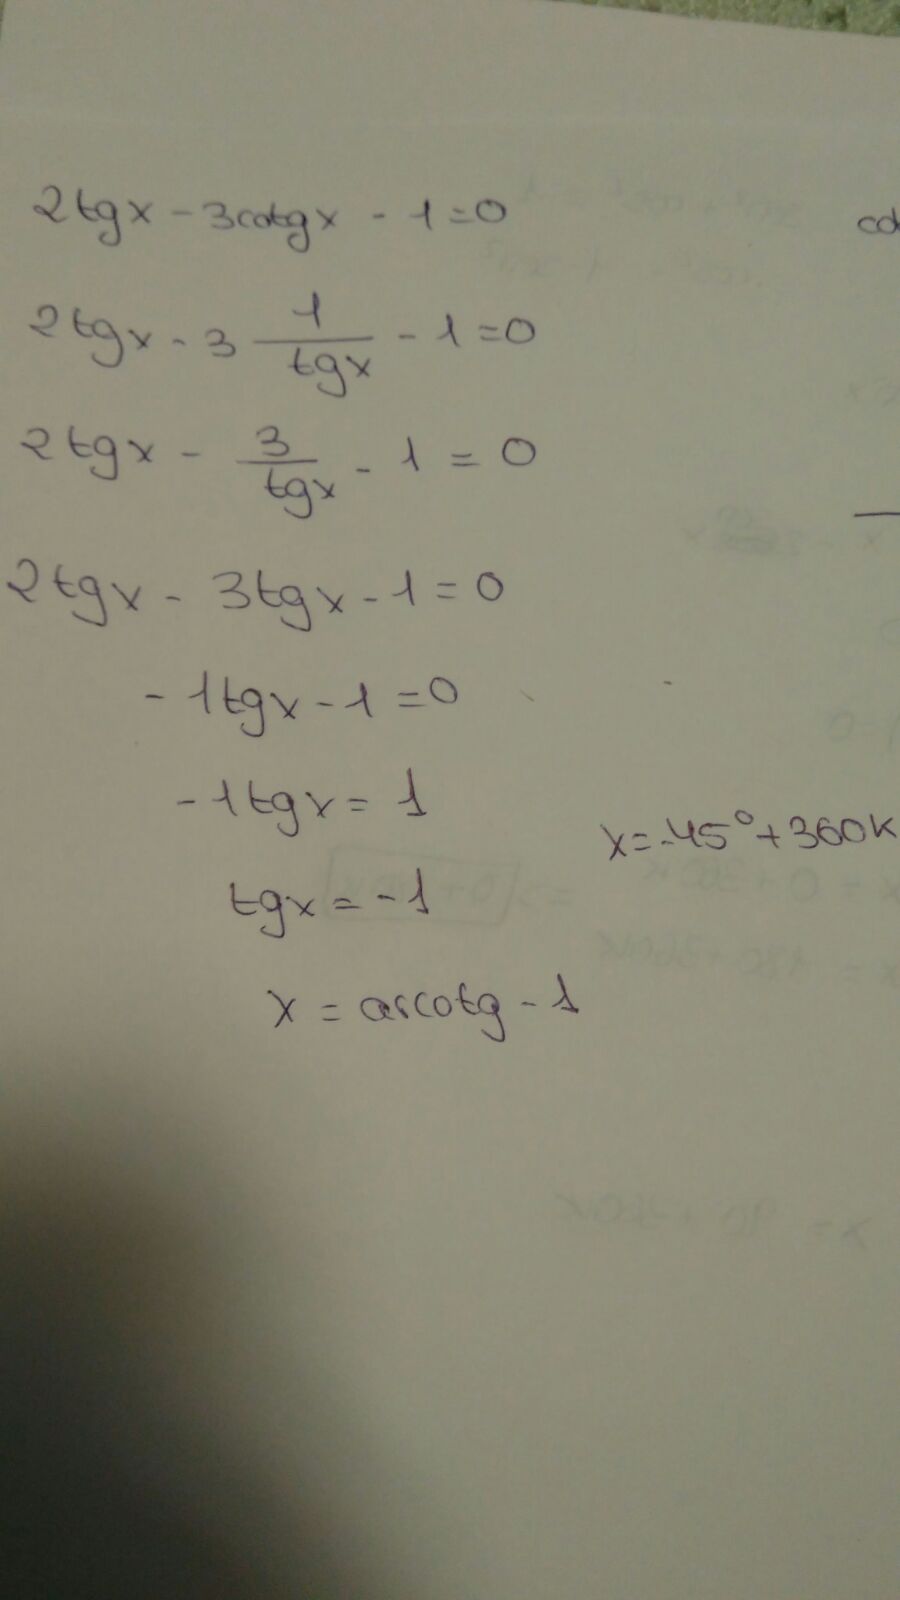 2tgx - 3cotgx - 1 = 0
2tgx - 3 1/tgx - 1 = 0
2tgx - 3/tgx - 1 = 0
2tgx - 3tgx - 1 = 0
-1tgx - 1 = 0
-1tgx = 1
x = -45° + 360K
tgx = -1
x = arcotg - 1